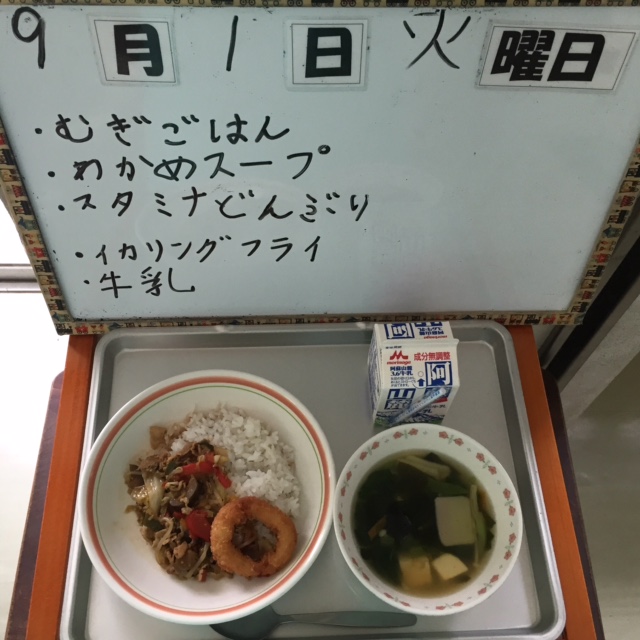 9月1日火曜日
・むぎごはん
・わかめスープ
・スタミナどんぶり
・イカリングフライ
・牛乳
成分無調整